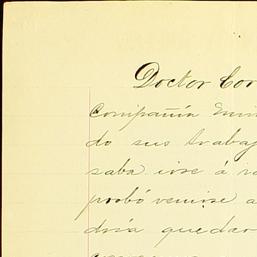 Doctor Cor
Compañía
do sus trabaj
saba irse á
probó venirse a
dría quedar